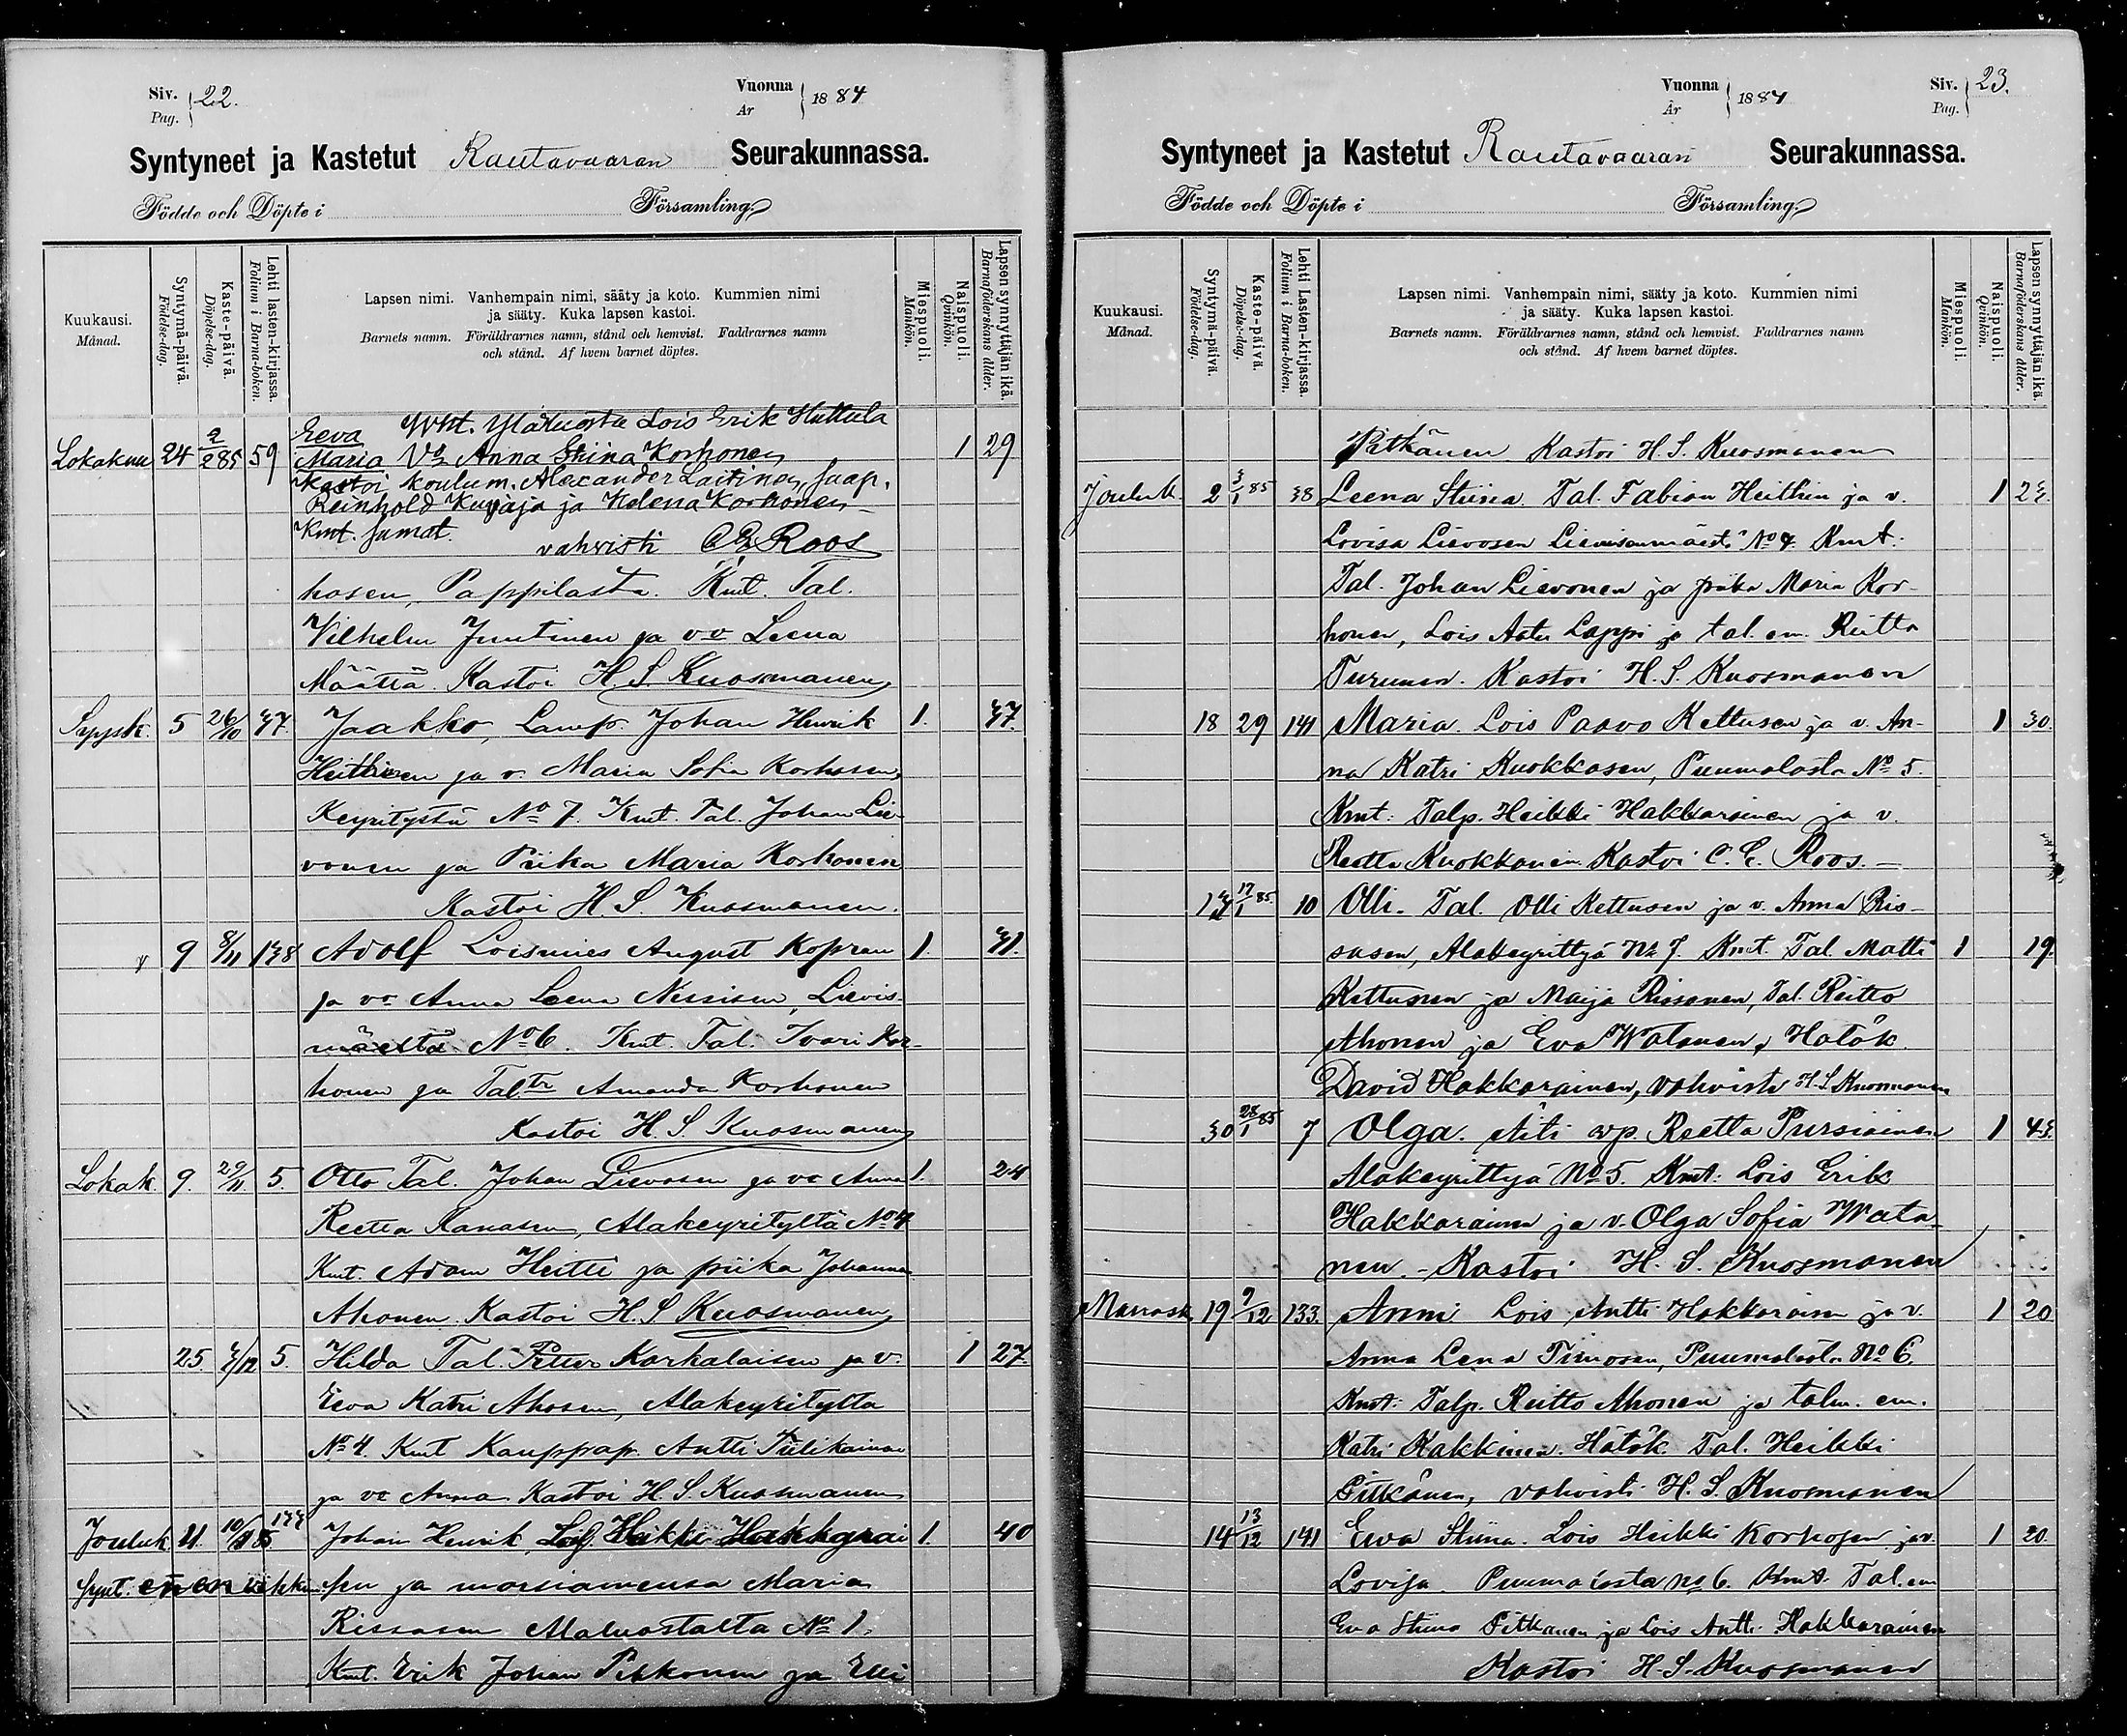 Siv. 22.
Pag.
Vuonna 1884
År
Syntyneet ja Kastetut Rautavaaran Seurakunnassa.
Födde och Döpte i Församling.
Kuukausi.
Månad.
Syntymä-päivä.
Födelse-dag.
Kaste-päivä.
Döpelse-dag.
Lehti lasten-kirjassa.
Folium i Barna-boken.
Lapsen nimi. Vanhempain nimi, sääty ja koto. Kummien nimi
ja sääty. Kuka lapsen kastoi.
Barnets namn. Föräldrarnes namn, stånd och hemvist. Faddrarnes namn
och stånd. Af hvem barnet döptes.
Miespuoli.
Mankön.
Naispuoli.
Qvinkön.
Lapsen synnyttäjän ikä.
Barnaföderskans ålder.
Eeva Wht. Yläluosta Lois Erik Huttula
Lokakuu 24 2/2 85 59 Maria Vo Anna Stiina Korhonen 1 29
Kastoi koulum. Alexander Laitinen, saap.
Reinhold Kuvaja ja Helena Korhonen
Kmt. samat.
vahvisti C E Roos
hosen, Pappilasta. Kmt. Tal.
Vilhelm Juutinen ja vo Leena
Määttä. Kastoi H. S. Kuosmanen
Syysk. 5 26/10 37. Jaakko, Lamp. Johan Henrik 1. 37.
Heittinen ja v. Maria Sofia Korhosen,
Keyritystä No 7. Kmt. Tal. Johan Lie-
vonen ja Piika Maria Korhonen
Kastoi H. S. Kuosmanen.
" 9 8/11 138 Adolf Loismies August Kopran 1. 31.
ja vo Anna Leena Nissisen, Lievis-
mäeltä No 6. Kmt. Tal. Ivari Kor-
honen ja Tal.tr Amanda Korhonen
Kastoi H. S. Kuosmanen
Lokak. 9. 29/11. 5. Otto Tal. Johan Lievosen ja vo Anna 1. 24
Reetta Kanasen, Alakeyrityltä No 4
Kmt. Adam Heitti ja piika Johanna
Ahonen. Kastoi H. S Kuosmanen
25. 3/12 5. Hilda Tal. Petter Karhalaisen ja v. 1 27.
Eeva Katri Ahosen, Alakeyrityltä
No 4. Kmt Kauppap. Antti Tiilikainen
ja vo Anna Kastoi H. S. Kuosmanen
Jouluk 11. 10/1 85 Johan Henrik, Lois Heikki Hakkarai 1. 40
Synt. ennen vihki sen ja morsiamensa Maria
Rissasen Alaluostalta No 1.
Kmt. Erik Johan Pitkonen ja Elli
Vuonna 1884
År
Siv. 23.
Pag.
Syntyneet ja Kastetut Rautavaaran Seurakunnassa.
Födde och Döpte i Församling.
Kuukausi.
Månad.
Syntymä-päivä.
Födelse-dag.
Kaste-päivä.
Döpelse-dag.
Lehti Lasten-kirjassa.
Folium i Barna-boken.
Lapsen nimi. Vanhempain nimi, sääty ja koto. Kummien nimi
ja sääty. Kuka lapsen kastoi.
Barnets namn. Föräldrarnes namn, stånd och hemvist. Faddrarnes namn
och stånd. Af hvem barnet döptes.
Miespuoli.
Mankön.
Naispuoli.
Qvinkön.
Lapsen synnyttäjän ikä.
Barnaföderskans ålder.
Pitkänen Kastoi H. S. Kuosmanen
Jouluk. 2 3/1 85 38 Leena Stiina. Tal. Fabian Heittin ja v. 1 23.
Lovisa Lievosen Lievisenmäest No 4. Kmt.
Tal. Johan Lievonen ja piika Maria Kor-
honen, Lois Aatu Lappi ja tal. em. Reitta
Turunen. Kastoi H. S. Kuosmanen
18 29 141 Maria. Lois Paavo Kettusen ja v. An- 1 30.
na Katri Kuokkasen, Puumalasta No 5.
Kmt: Talp. Heikki Hakkarainen ja v.
Reetta Kuokkanen. Kastoi C. E. Roos. —
13 17/1 85. 10 Olli. Tal. Olli Kettusen ja v. Anna Ris-
sasen, Alakeyrittyä No 7. Kmt. Tal. Matti 1 19.
Kettunen ja Maija Rissanen, Tal. Reitto
Ahonen ja Eva Watanen, Hätäk.
David Hakkarainen, vahvisti H. S. Kuosmanen
30 28/1 85 7 Olga. Äiti Reetta Pursiainen 1 43.
Alakeyrittyä No 5. Kmt: Lois Erik
Hakkarainen ja v. Olga Sofia Wata-
nen. - Kastoi H. S. Kuosmanen
Marrask 19 7/12 133. Anni Lois Antti Hakkaraisen ja v. 1 20
Anna Lena Timosen, Puumalasta No 6.
Kmt: Talp. Reitto Ahonen ja talon em.
Katri Kakkinen. Hätäk. Tal. Heikki
Pitkänen, vahvisti H. S. Kuosmanen
14 13/12 141 Ewa Stiina. Lois Heikki Korhosen ja v. 1 20.
Lovisa. Puumalasta No 6. Kmt. Tal. em
Eva Stiina Pitkänen ja lois Antti Hakkarainen
Kastoi H. S. Kuosmanen